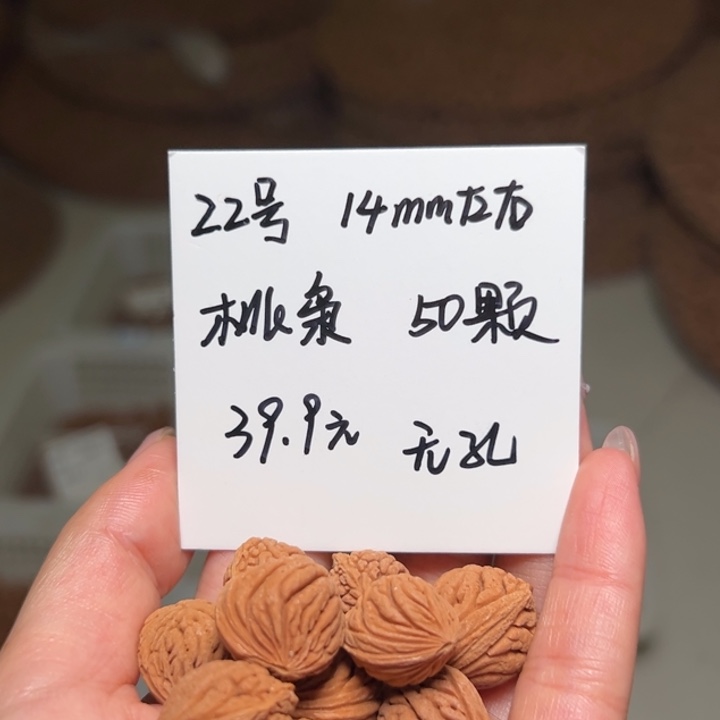 22号 14mm左右
桃枭 50颗
39.9元 无孔